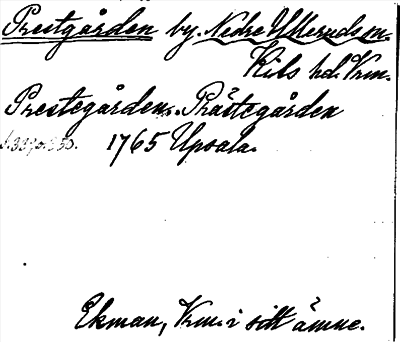 Prestgården by, Nedre Ulleruds sn.
Kils hd. Vrm.
Prestegården. Prästegården
1765 Upsala.
Ekman, Vrm. i sitt ämne.